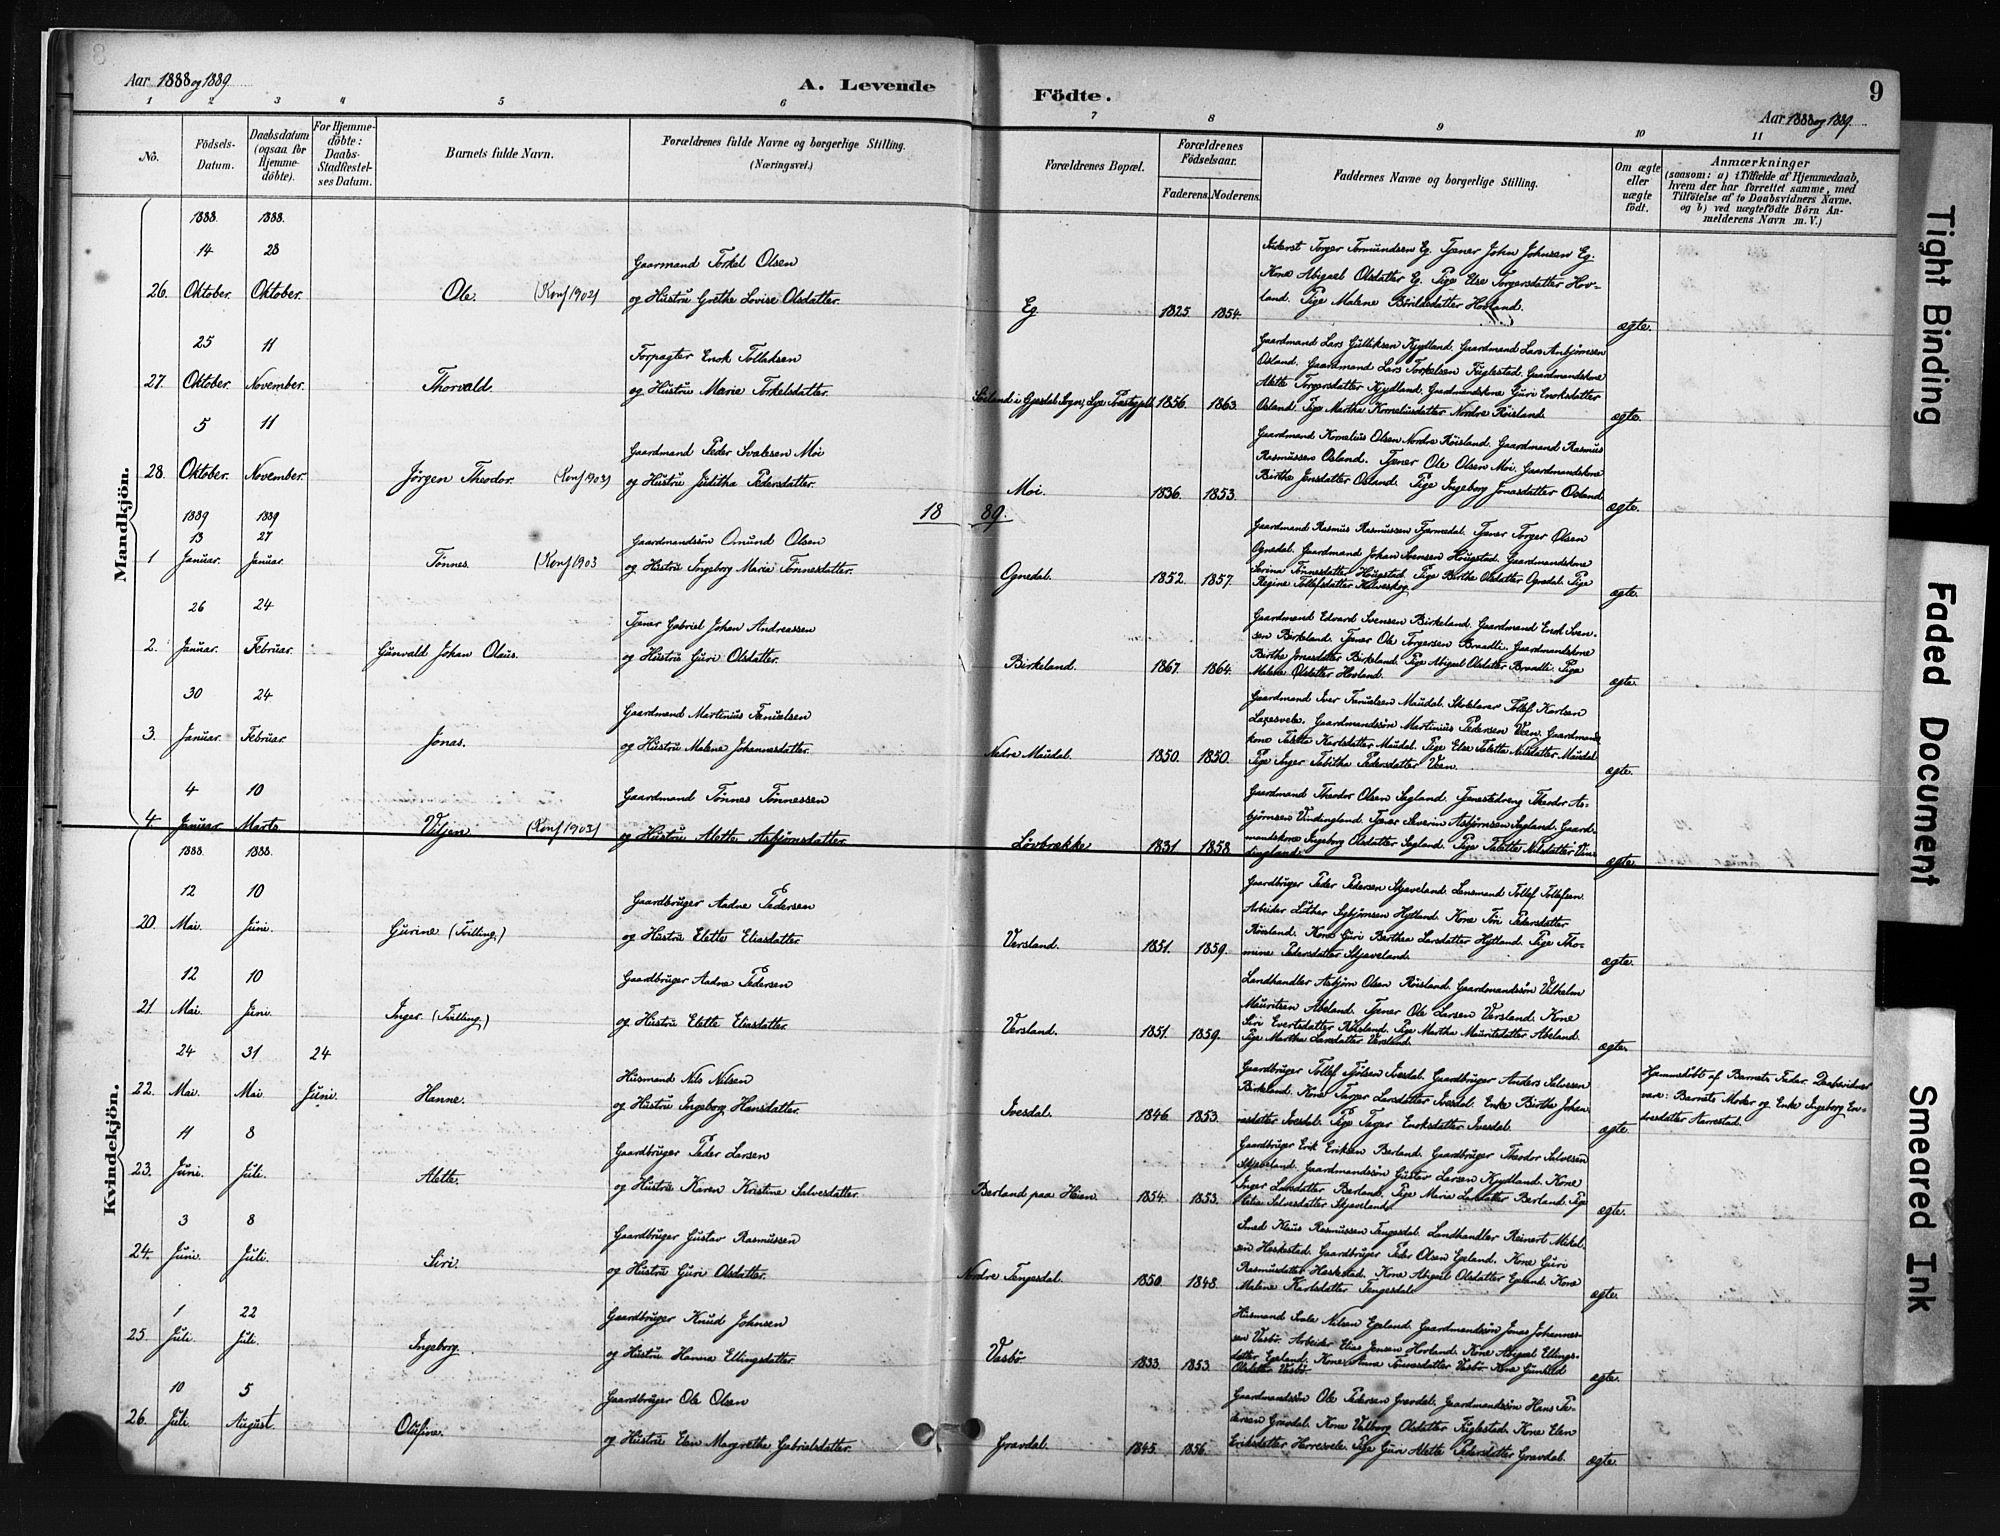 8
Aar 1888 og 1889
A. Levende
Födte.
9
Aar 1888 og 1889.
1 2 3 4 5 6 7 8 9 10 11
No.
Födsels-Datum.
Daabsdatum (ogsaa for Hjemme-döbte).
For Hjemme-döbte: Daabs-Stadfæstel-ses Datum.
Barnets fulde Navn.
Forældrenes fulde Navne og borgerlige Stilling. (Næringsvei.)
Forældrenes Bopæl.
Forældrenes Födselsaar.
Faderens. Moderens.
Faddernes Navne og borgerlige Stilling.
Om ægte eller uægte födt.
Anmærkninger
(saasom: a) i Tilfælde af Hjemmedaab, hvem der har forrettet samme, med Tilföielse af to Daabsvidners Navne. og b) ved uægtefödte Börn An-melderens Navn m. V.)
Mandkjön.
1888. 1888.
14 28
26. Oktober. Oktober. Ole. (Konf 1902)
Gaarmand Torkel Olsen
og Hustru Grethe Lovise Olsdatter.
Eg 1825. 1854.
Inderst Torger Tormundsen Eg. Tjener John Johnsen Eg.
Kone Abigael Olsdatter Eg. Pige Else Torgersdatter Hov-
land. Pige Malene Bårildsdatter Hovland.
ægte.
25 11
27. Oktober. November. Thorvald.
Forpagter Enok Tollaksen
og Hustru Marie Torkelsdatter.
1856. 1863.
Gaardmand Lars Gulliksen Kydland. Gaardmand Lars Anbjørnsen
Osland. Gaardmand Lars Torkelsen Fuglestad. Gaardmandskone
Alette Torgersdatter Kydland. Gaardmandskone Guri Enoksdatter
Osland. Pige Martha Korneliusdatter Nordre Røisland.
ægte.
5 11
28. Oktober. November. Jørgen Theodor. (Konf 1903)
Gaardmand Peder Svalesen Moi
og Hustru Juditha Pedersdatter.
Moi. 1836. 1853.
Gaardmand Kornelius Olsen Nordre Røisland. Gaardmand Rasmus
Rasmussen Osland. Tjener Ole Olsen Moi. Gaardmandskone
Birthe Jonsdatter Osland. Pige Ingeborg Jonasdatter Osland
ægte.
18 89.
1889 1889
13 27
1 Januar. Januar. Tønnes. (Konf 1903
Gaardmandssøn Omund Olsen
og Hustru Ingeborg Maria Tønnesdatter.
Ognedal. 1852. 1857.
Gaardmand Rasmus Rasmussen Fjermedal. Tjener Torger Olsen
Ognedal. Gaardmand Johan Svensen Hougstad. Gaardmandskone
Serina Tønnesdatter Hougstad. Pige Birthe Olsdatter Ognedal. Pige
Regine Tollefsdatter Kalveskog.
ægte.
26 24
2. Januar. Februar. Gunvald Johan Olaus.
Tjener Gabriel Johan Andreassen
og Hustru Guri Olsdatter.
Birkeland. 1867. 1864.
Gaardmand Edvard Svensen Birkeland. Gaardmand Enok Sven-
sen Birkeland. Tjener Ole Torgersen Braadli. Gaardmandskone
Birthe Jonasdatter Birkeland. Pige Abigael Olsdatter Braadli. Pige
Malene Olsdatter Hovland.
ægte.
30 24
3. Januar. Februar. Jonas.
Gaardmand Martinius Tanuelsen
og Hustru Malene Johannesdatter.
Nedre Maudal. 1850. 1850.
Gaardmand Iver Tanuelsen Maudal. Skolelærer Tollef Karlsen
Laxesvele. Gaardmandssøn Martinius Pedersen Veen. Gaardmands
kone Taletta Karlsdatter Maudal. Pige Else Taletta Nilsdatter Maudal
Pige Inger Tabitha Pedersdatter Veen.
ægte.
4 10
4. Januar Marts. Viljen (Konf 1903)
Gaardmand Tønnes Tønnessen
og Hustru Alette Asbjørnsdatter.
Løvbrække 1831. 1858
Gaardmand Theodor Olsen Sægland. Tjenestedreng Theodor As-
bjørnsen Vindingland. Tjener Severin Asbjørnsen Sægland. Gaard-
mandskone Ingeborg Olsdatter Sægland. Pige Taletta Nilsdatter Vin-
dingland.
ægte.
Kvindekjön.
1888. 1888.
12 10
20. Mai. Juni. Gurine (Tvilling.)
Gaardbruger Aadne Pedersen
og Hustru Elette Eliasdatter
Versland. 1851. 1859.
Gaardbruger Peder Pedersen Skjæveland. Lensmand Tollef Tollefsen.
Arbeider Luther Sigbjørnsen Hytland. Kone Siri Pedersdatter
Røisland. Kone Guri Berthea Larsdatter Hytland. Pige Tho-
mine Pedersdatter Skjæveland.
ægte.
12 10
21 Mai. Juni. Inger. (Tvilling)
Gaardbruger Aadne Pedersen
og Hustru Elette Eliasdatter
Versland. 1851. 1859.
Landhandler Asbjørn Olsen Røisland. Gaardmandssøn Vilhelm
Mauritsen Abeland. Tjener Ole Larsen Versland. Kone
Siri Evertsdatter Røisland. Pige Martha Mauritsdatter Abeland.
Pige Martha Larsdatter Versland.
ægte.
24 31 24
22. Mai. Mai Juni. Hanne.
Husmand Nils Nilsen
og Hustru Ingeborg Hansdatter.
Ivesdal. 1846. 1853.
Gaardbruger Tollef Tjølsen Ivesdal. Gaardbruger Anders Salvesen
Birkeland. Kone Targer Larsdatter Ivesdal. Enke Birthe Johan-
nesdatter Ivesdal. Pige Tager Enoksdatter Ivesdal.
ægte.
Hjemmedøbt af Barnets Fader. Daabsvidner
vare: Barnets Moder og Enke Ingeborg En-
dresdatter Harrestad.
11 8
23. Juni. Juli. Alette.
Gaardbruger Peder Larsen
og Hustru Karen Kristine Salvesdatter.
Berland paa Heien. 1854. 1853.
Gaardbruger Erik Eriksen Berland. Gaardbruger Theodor Salvesen
Skjæveland. Gaardmandssøn Gustav Larsen Kydland. Kone
Inger Larsdatter Berland. Pige Maria Larsdatter Berland. Pige
Salvesdatter Skjæveland.
ægte.
3 8
24. Juni. Juli. Siri.
Gaardbruger Gustav Rasmussen
og Hustru Guri Olsdatter.
Nordre Tengesdal. 1850. 1848.
Smed Klaus Rasmussen Tengesdal. Landhandler Reinert Mikel-
sen Haskestad. Gaardbruger Peder Olsen Egeland. Kone Guri
Rasmusdatter Haskestad. Kone Abigael Olsdatter Egeland. Kone
Malene Karlsdatter Tengesdal.
ægte.
1 22
25. Juli. Juli. Ingeborg.
Gaardbruger Knud Johnsen
og Hustru Hanna Ellingsdatter.
Vasbø. 1833. 1853.
Husmand Svale Nilsen Egeland. Gaardmandssøn Jonas Johannes-
sen Vasbø. Arbeider Elias Jensen Hovland. Kone Abigael Ellings-
datter Egeland. Kone Anna Tønnesdatter Vasbø. Kone Gunhild
Olsdatter Vasbø.
ægte.
10 5
26. Juli. August. Olufine.
Gaardbruger Ole Olsen
og Hustru Elen Margrethe Gabrielsdatter
Gravdal. 1845. 1856.
Gaardmandssøn Ole Pedersen Gravdal. Gaardmandssøn Hans Pe-
dersen Gravdal. Kone Valborg Olsdatter Fuglestad. Kone Elen
Eriksdatter Herresvele. Pige Guri Alette Pedersdatter Gravdal.
ægte.
Tight Binding
Faded Document
Smeared Ink